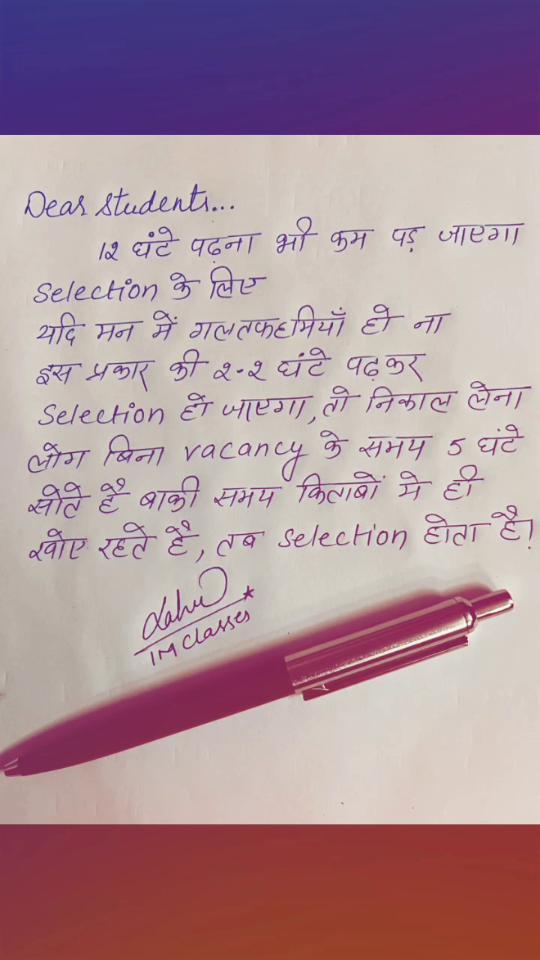 Dear students...
12 घंटे पढ़ना भी कम पड़ जाएगा
Selection के लिए
यदि मन में गलतफहमियाँ हो ना
इस प्रकार की 2-2 घंटे पढ़कर
Selection हो जाएगा, तो निकाल लेना
लोग बिना vacancy के समय 5 घंटे
सोते है बाकी समय किताबों मे ही
खोए रहते है, तब selection होता है!
IM Classes